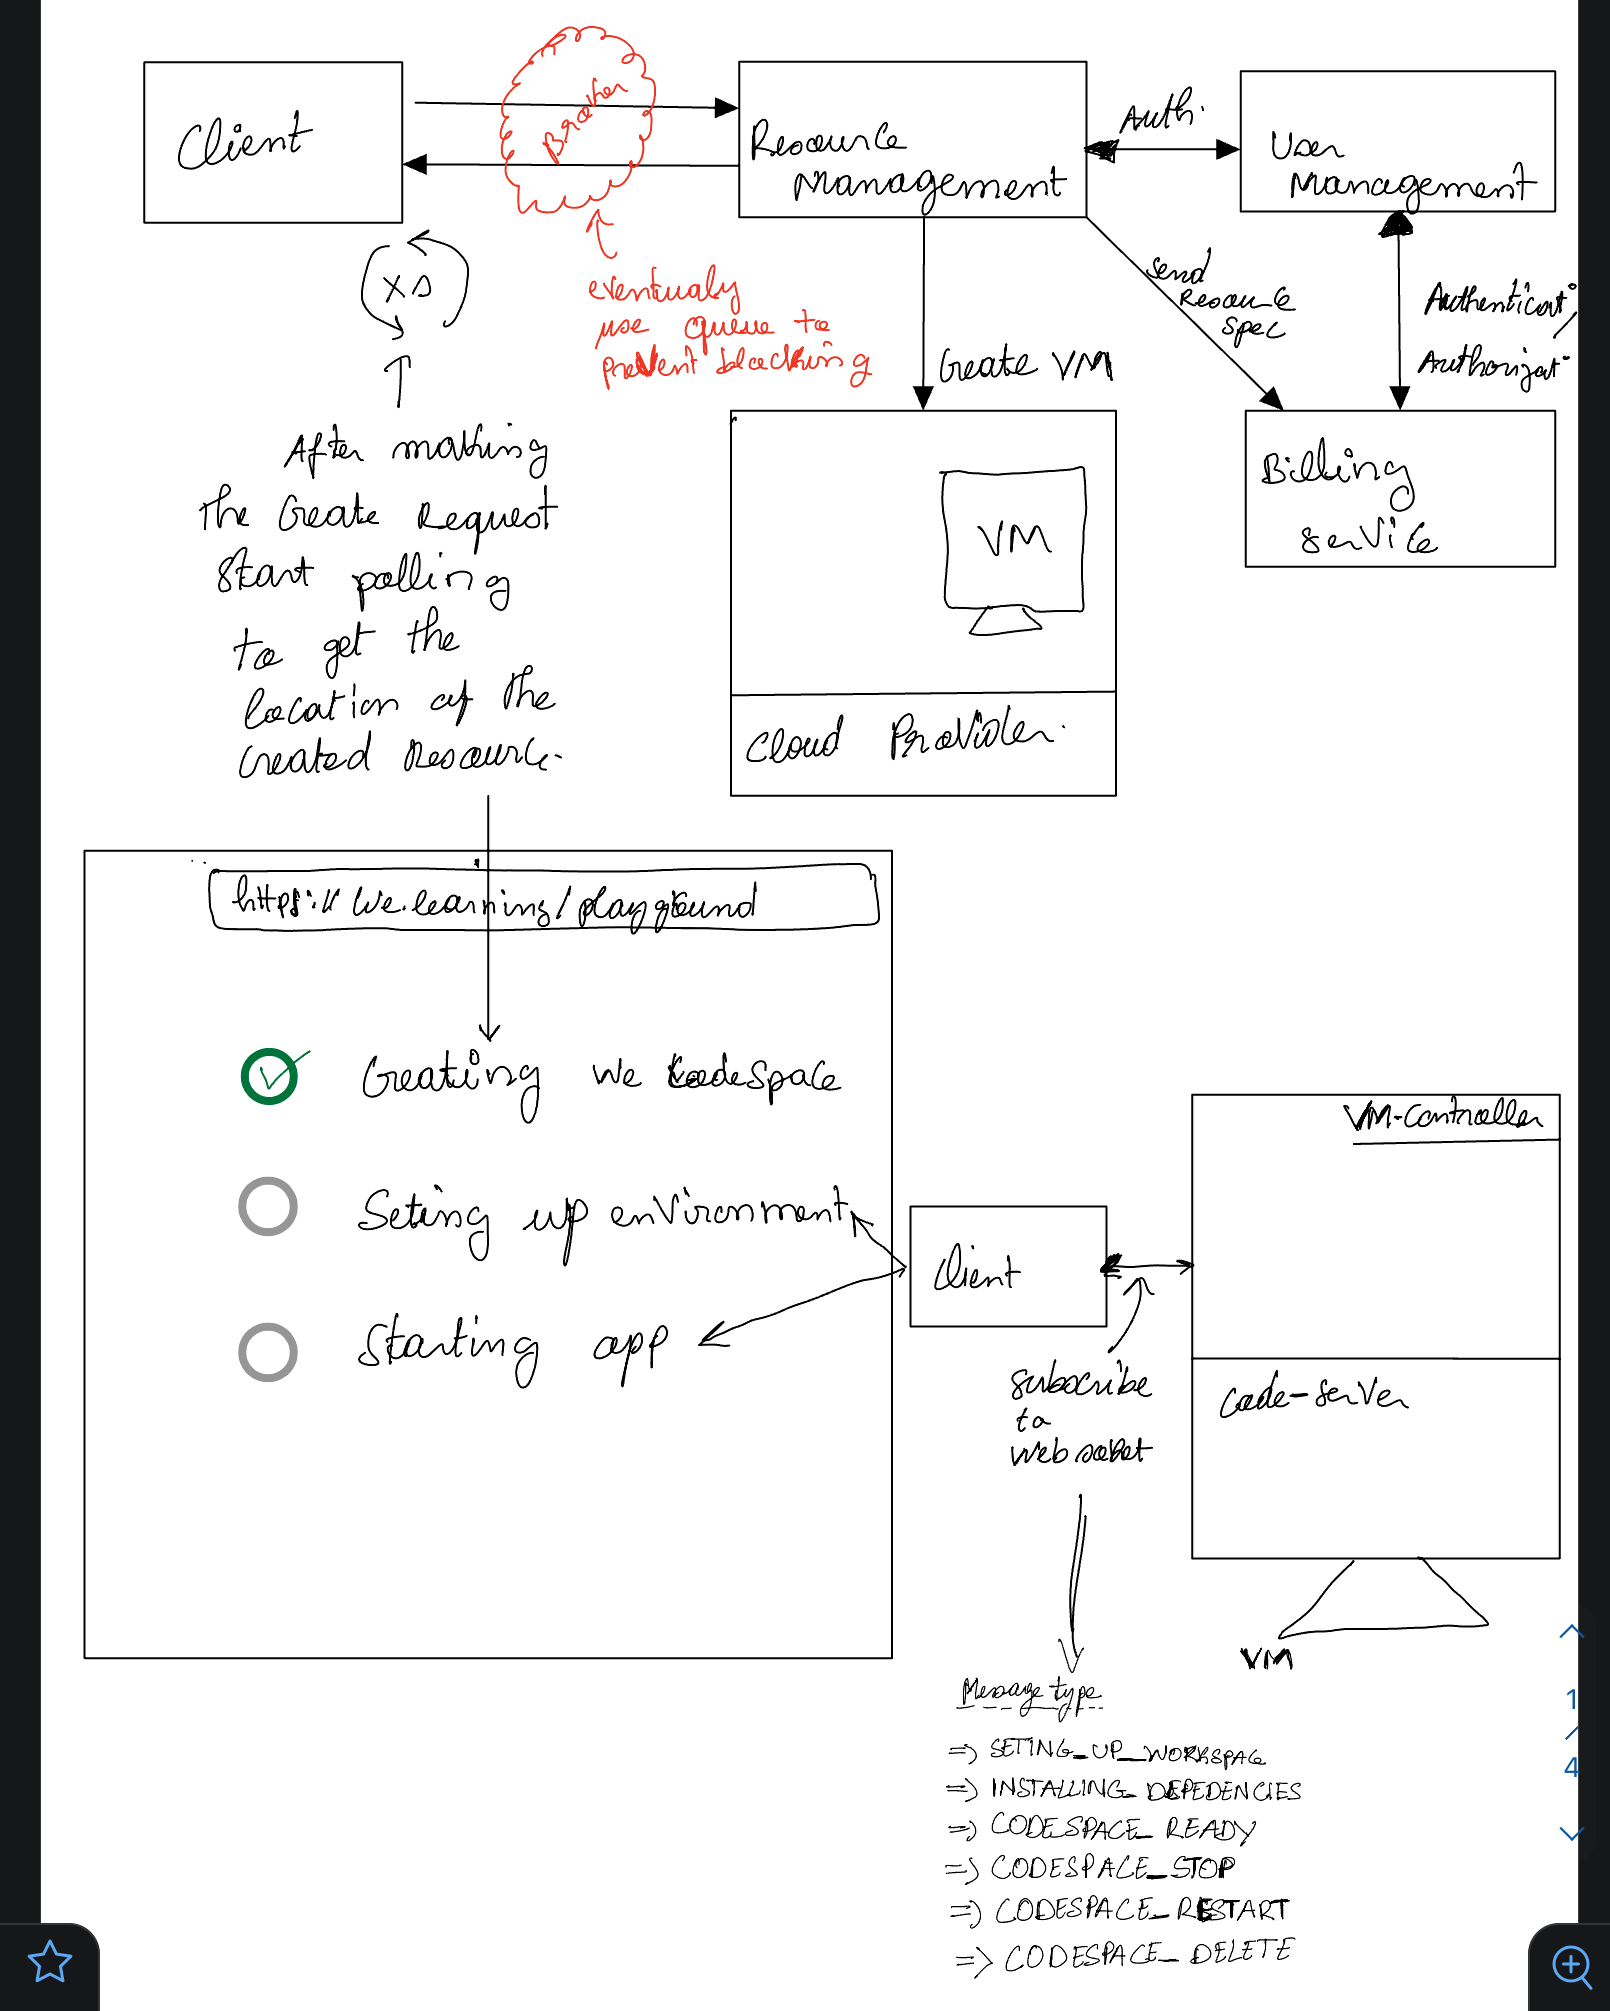 Client
Broker
Resource
Management
Auth.
User
Management
xs
eventualy
use queue to
prevent blocking
Send
Resource
spec
Authenticat°/
Authorizat°
Create VM
After making
The Create Request
Start polling
to get the
location of the
created Resource.
VM
Cloud Provider.
Billing
service
https://we.learning/playground
Creating we codespace
Seting up environment
Starting app
Client
VM-Controller
subscribe
to
websocket
code-server
VM
Message type
=> SETING_UP_WORKSPACE
=> INSTALLING_DEPEDENCIES
=> CODESPACE_READY
=> CODESPACE_STOP
=> CODESPACE_RESTART
=> CODESPACE_DELETE
1
/
4